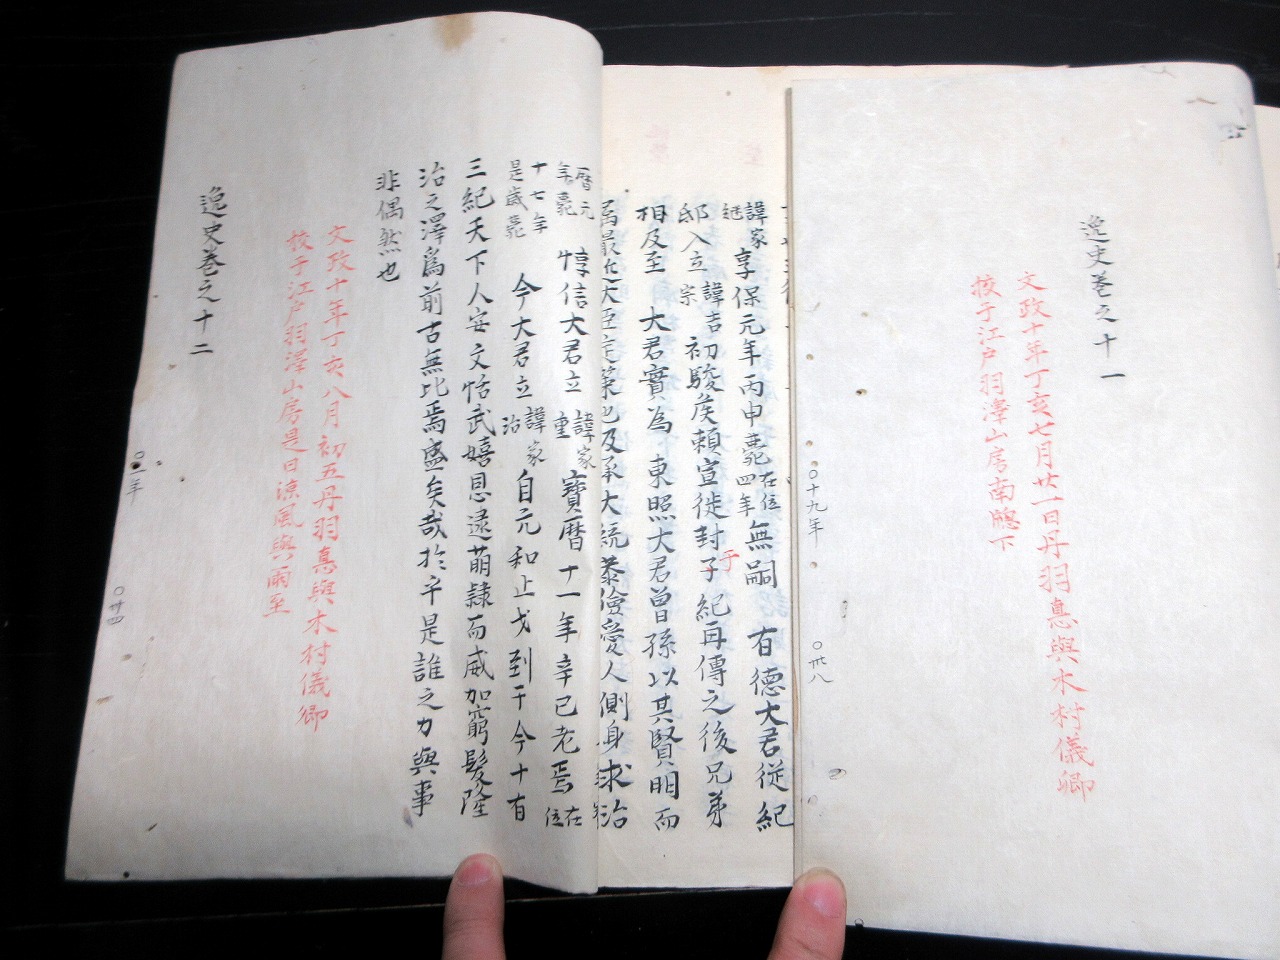 逸史巻之十一
文政十年丁亥七月廿一日丹羽悳與木村儀卿
挍于江戸羽澤山房南牕下
〇十九年
〇卅八
諱家
継
享保元年丙申薨
在位
四年
無嗣 有德大君従紀
邸入立
諱吉
宗
初駿矦頼宣徙封于紀再傳之後兄弟
于
相及至 大君實為 東照大君曽孫以其賢明而
属最近大臣定策也及承大統恭儉愛人側身求治
暦元
年薨
惇信大君立
諱家
重
寳暦十一年辛巳老焉
在
位
十七年
是歳薨
今大君立
諱家
治
自元和止戈到于今十有
三紀天下人安文恬武嬉恩逮萌隷而威加窮髮隆
治之澤爲前古無比焉盛矣哉於乎是誰之力與事
非偶然也
文政十年丁亥八月初五丹羽悳與木村儀卿
挍于江戸羽澤山房是日涼風與雨至
逸史巻之十二
〇二年
〇廿四